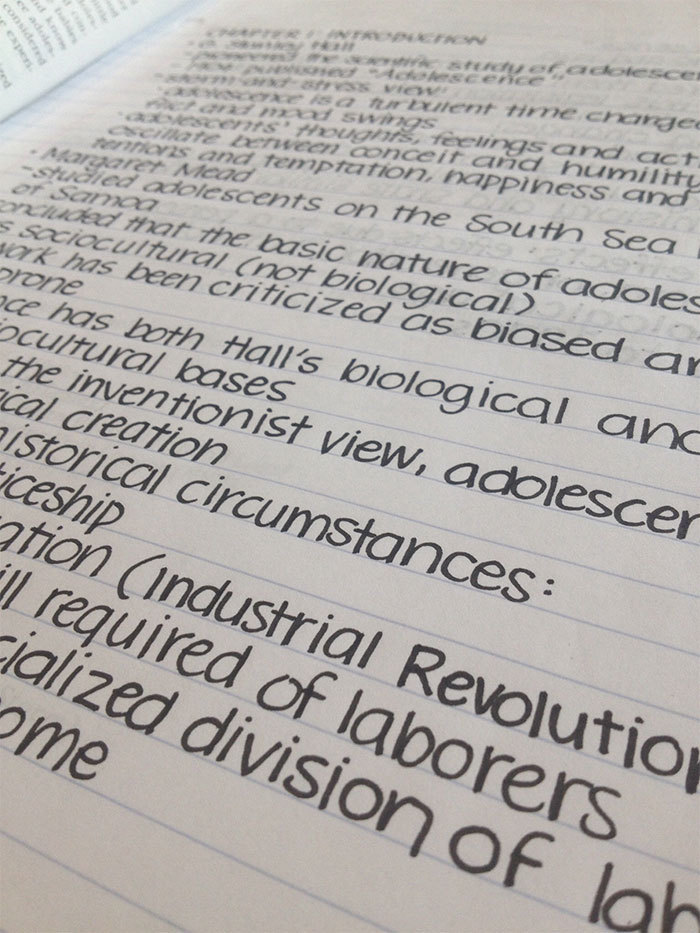 CHAPTER 1: INTRODUCTION
G. Stanley Hall
pioneered the scientific study of adolesce
first published "Adolescence",
storm-and-stress view:
adolescence is a turbulent time charged
flict and mood swings
adolescents' thoughts, feelings and act
oscillate between conceit and humility
tentions and temptation, happiness and
· Margaret Mead
-studied adolescents on the South Sea
of Samoa
oncluded that the basic nature of adoles
s sociocultural (not biological)
work has been criticized as biased an
prone
nce has both Hall's biological and
ocultural bases
the inventionist view, adolescen
ical creation
historical circumstances:
ticeship
ation (Industrial Revolution
ill required of laborers
cialized division of lab
ome